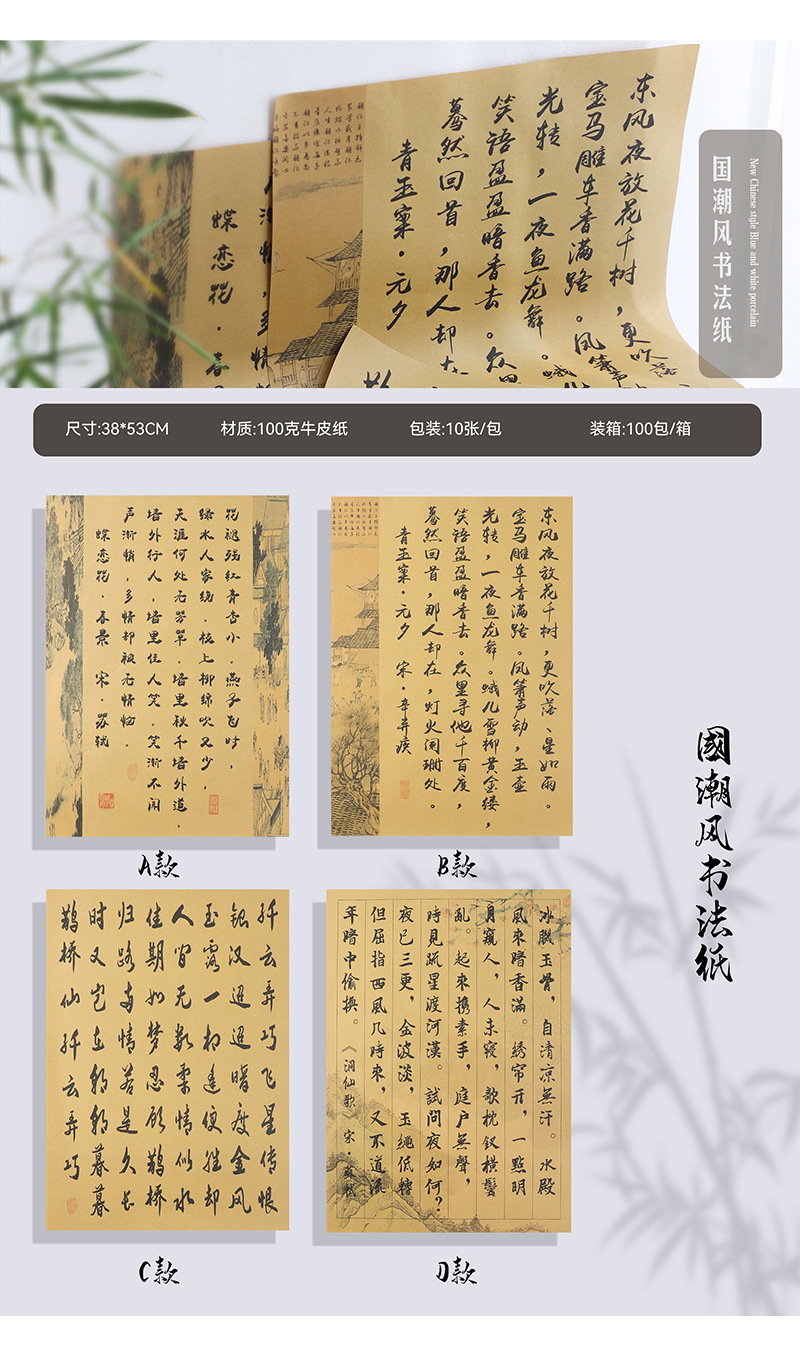 东风夜放花千树，更吹落
宝马雕车香满路。凤箫声
光转，一夜鱼龙舞。蛾儿
笑语盈盈暗香去。众里
蓦然回首，那人却在
青玉案·元夕
蝶恋花·春
国潮风书法纸
New Chinese style Blue and white porcelain
尺寸:38*53CM
材质:100克牛皮纸
包装:10张/包
装箱:100包/箱
花褪残红青杏小。燕子飞时，
绿水人家绕。枝上柳绵吹又少，
天涯何处无芳草。墙里秋千墙外道。
墙外行人，墙里佳人笑。笑渐不闻
声渐悄，多情却被无情恼。
蝶恋花·春景 宋·苏轼
A款
东风夜放花千树，更吹落、星如雨。
宝马雕车香满路。凤箫声动，玉壶
光转，一夜鱼龙舞。蛾儿雪柳黄金缕，
笑语盈盈暗香去。众里寻他千百度，
蓦然回首，那人却在，灯火阑珊处。
青玉案·元夕 宋·辛弃疾
B款
國潮风书法纸
纤云弄巧飞星传恨
银汉迢迢暗度金风
玉露一相逢便胜却
人间无数柔情似水
佳期如梦忍顾鹊桥
归路两情若是久长
时又岂在朝朝暮暮
鹊桥仙纤云弄巧
C款
冰肌玉骨，自清凉無汗。水殿
風來暗香滿。綉帘开，一點明
月窺人，人未寢，欹枕釵橫鬢
亂。起來携素手，庭户無聲，
時見疏星渡河漢。試問夜如何？
夜已三更，金波淡，玉繩低轉
但屈指西風几時來，又不道流
年暗中偷换。《洞仙歌》宋·蘇軾
D款